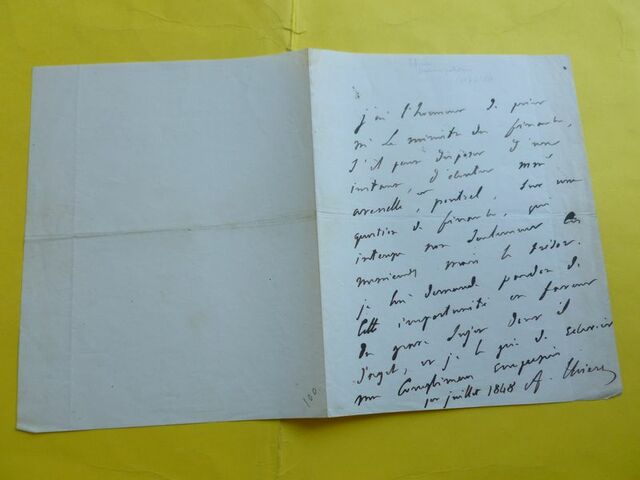 j'ai l'honneur de prier
M. le ministre des finances,
s'il peut disposer d'un
instant, d'écouter
question de finances, qui
intéresse non seulement les
mais le trésor.
je lui demande pardon de
cette importunité en faveur
du grave sujet dont il
s'agit, et je le prie de recevoir
mes compliments empressés
1er juillet 1848 A. Thiers
100